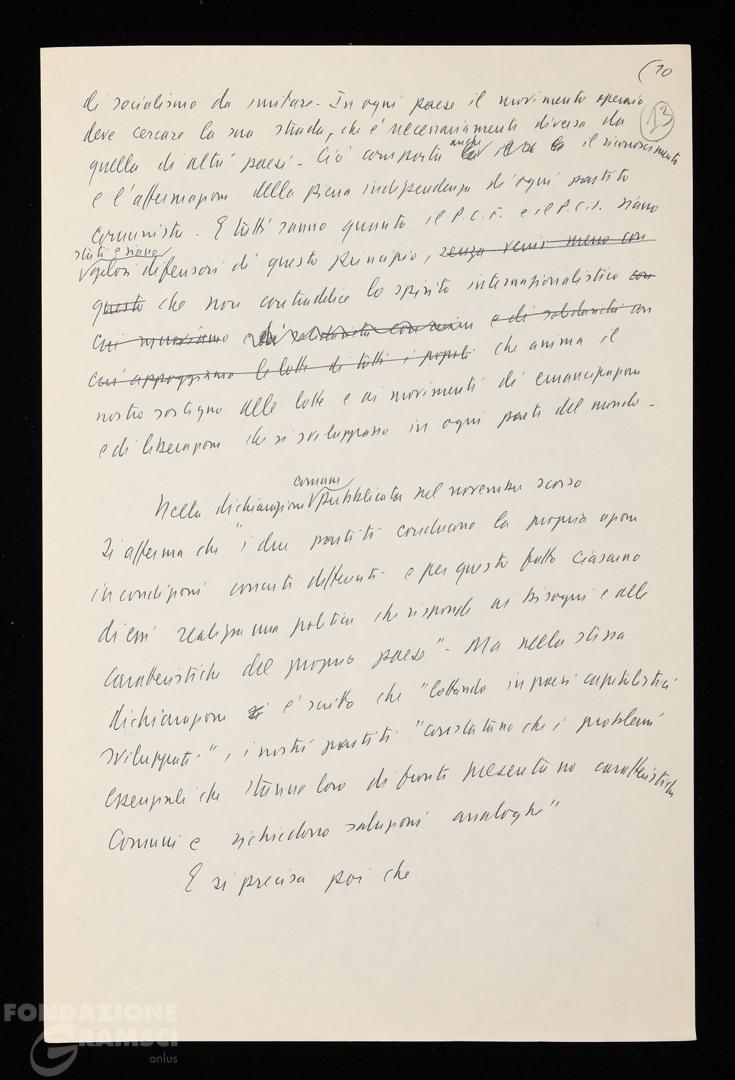 (10
13
di socialismo da imitare. In ogni paese il movimento operaio
deve cercare la sua strada, che è necessariamente diversa da
quella di altri paesi. Ciò comporta anche il riconoscimento
e l'affermazione della piena indipendenza di ogni partito
comunista. E tutti sanno quanto il P.C.F. e il P.C.I. siano
stati e siano
gelosi difensori di questo principio, senza venir meno con
questo che non contraddice lo spirito internazionalistico con
cui e di solidarietà con
cui appoggiamo le lotte di tutti i popoli che anima il
nostro sostegno alle lotte e ai movimenti di emancipazione
e di liberazione che si sviluppano in ogni parte del mondo.
comune
Nella dichiarazione pubblicata nel novembre scorso
si afferma che "i due partiti conducono la propria azione
in condizioni concrete differenti e per questo fatto ciascuno
di essi realizza una politica che risponde ai bisogni e alle
caratteristiche del proprio paese". Ma nella stessa
dichiarazione è scritto che "lottando in paesi capitalistici
sviluppati", i nostri partiti "constatano che i problemi
essenziali che stanno loro di fronte presentano caratteristiche
comuni e richiedono soluzioni analoghe"
E si precisa poi che
FONDAZIONE
GRAMSCI
onlus